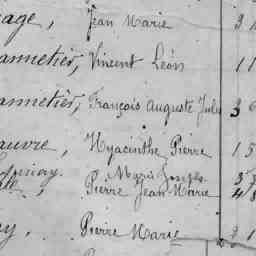 age, Jean Marie 3
annetier, Vincent Léon 11
annetièr, François Auguste Jules 3
auvre, Hyacinthe Pierre 15
Marie Joseph
Pierre Jean Marie 48
y, Pierre Marie 2